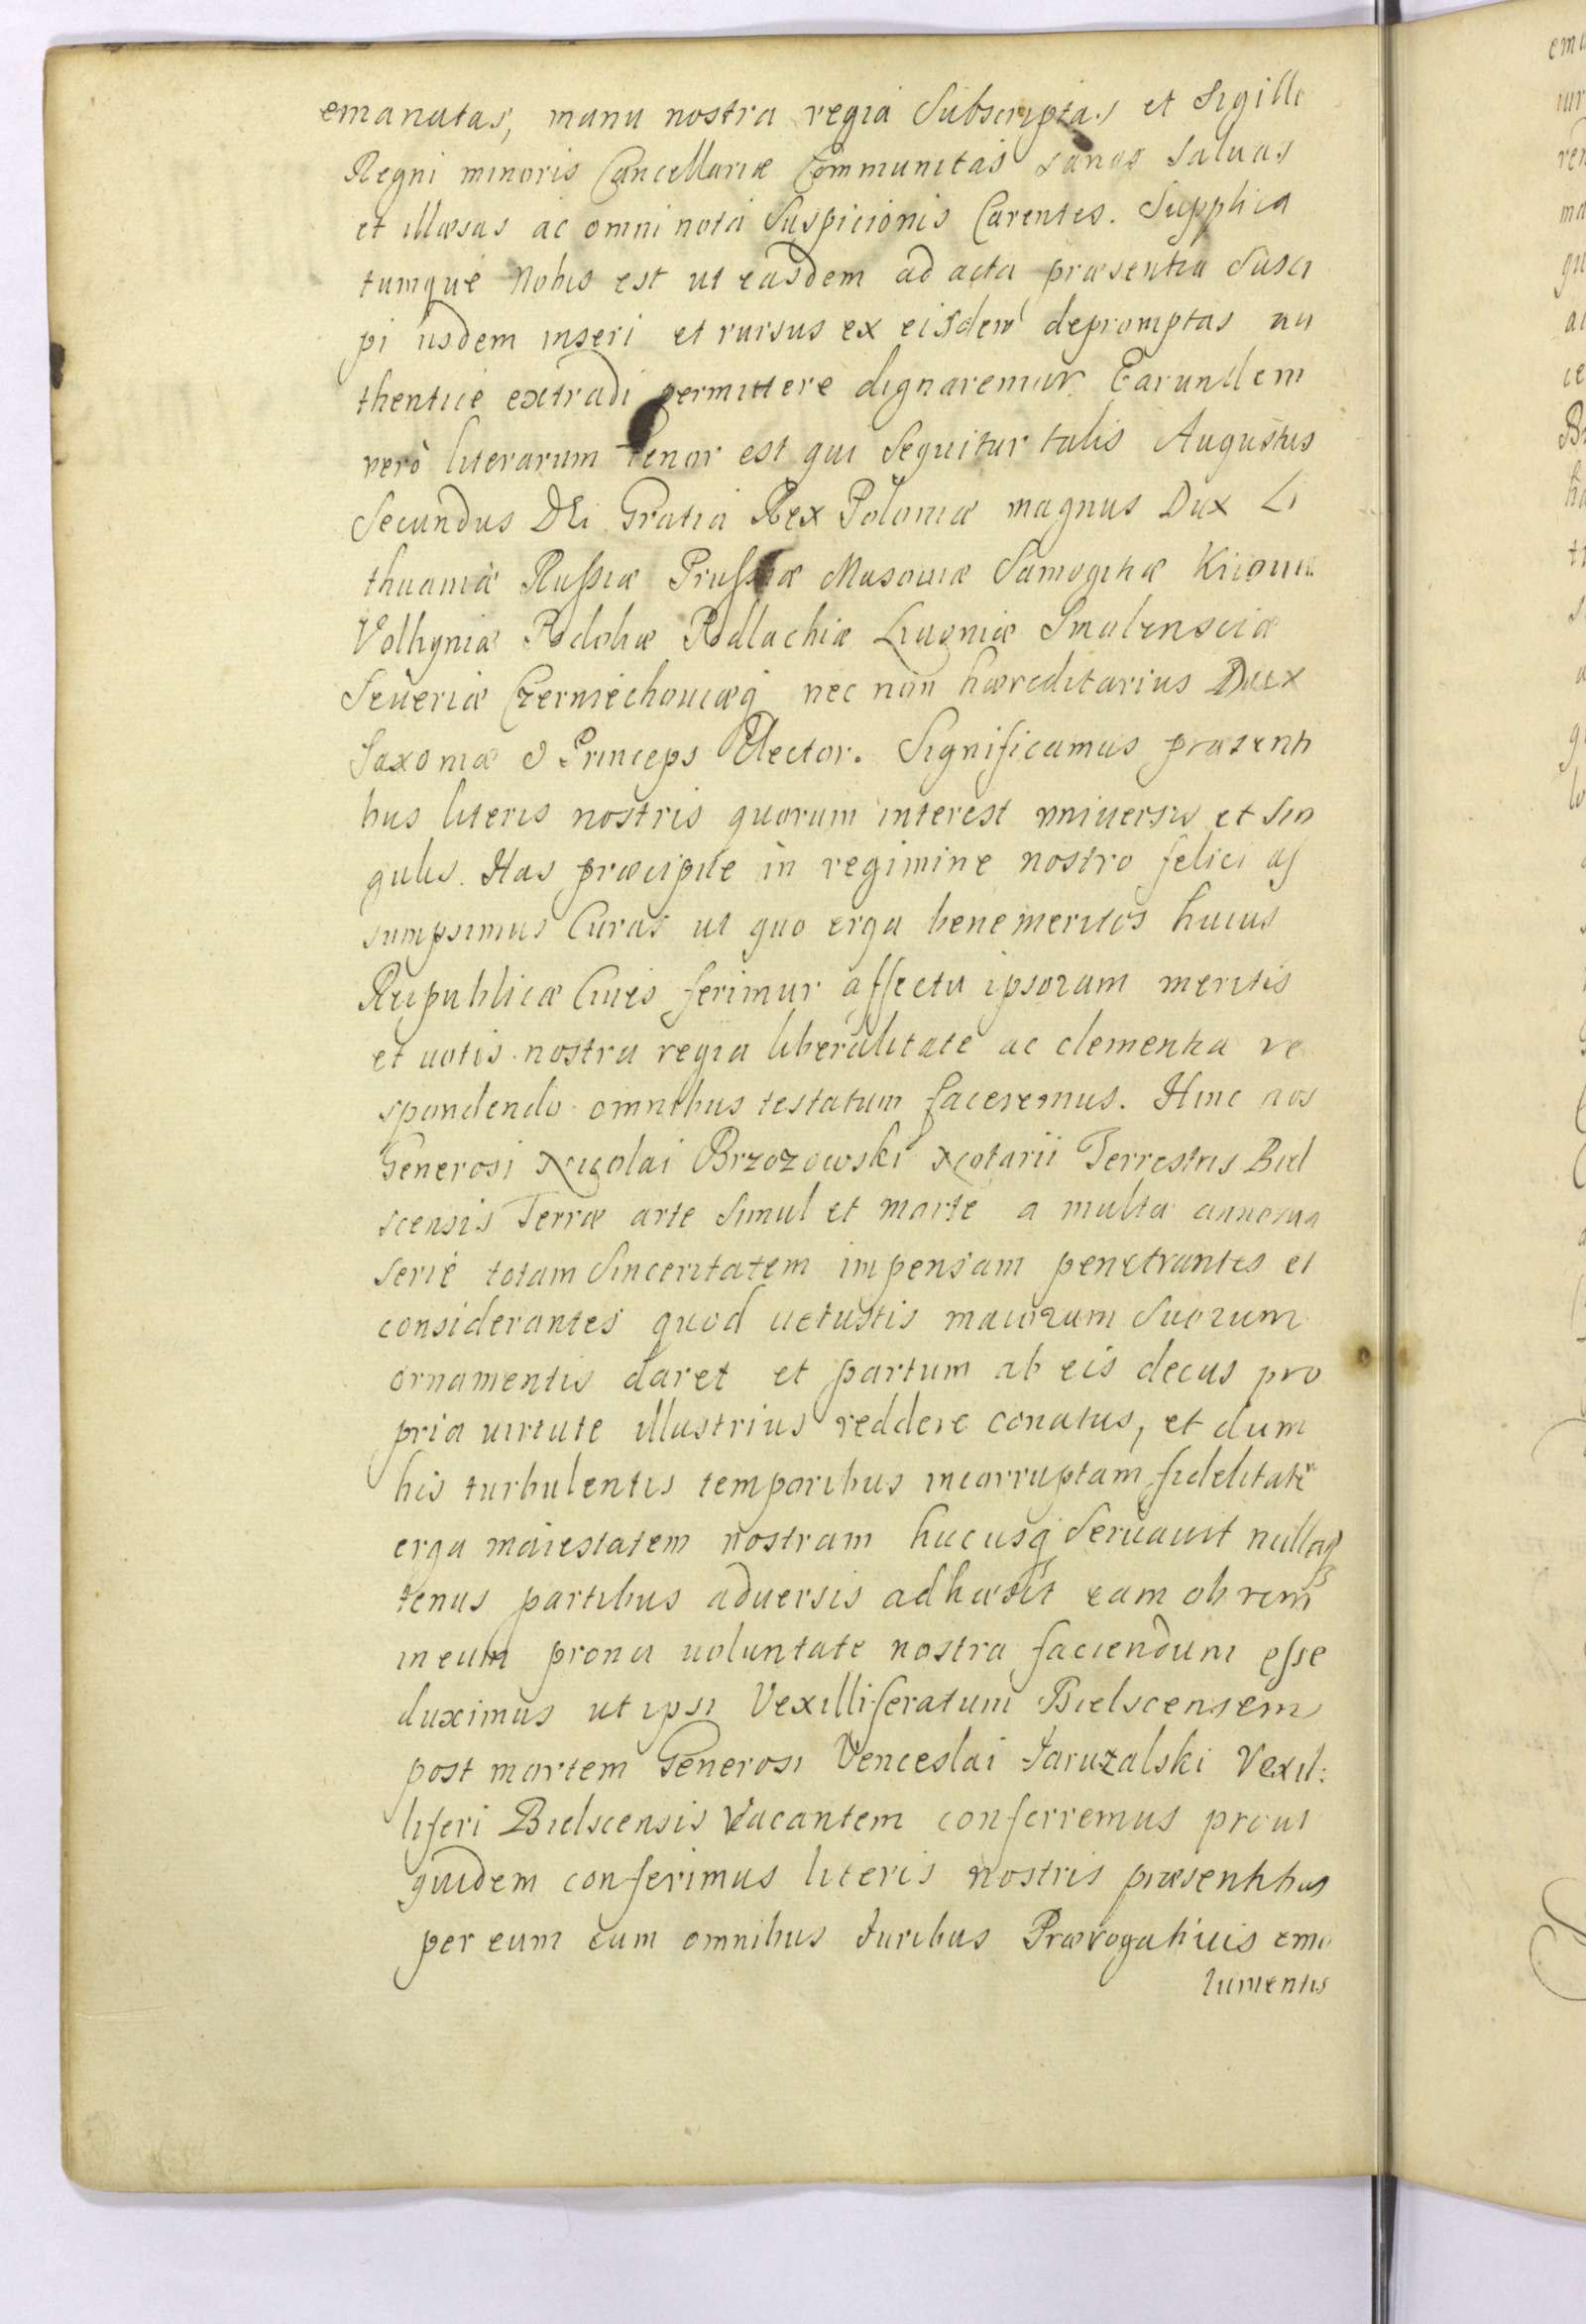 emanatas, manu nostra regia Subscriptas et Sigillo
Regni minoris Cancellariæ Communitas sanas saluas
et illæsas ac omni nota Suspicionis Carentes. Supplica
tumque Nobis est ut easdem ad acta præsentia Susci
pi iisdem inseri et rursus ex eisdem depromptas au
thentice extradi permittere dignaremur. Earundem
verò literarum tenor est qui Sequitur talis Augustus
Secundus DEi Gratia Rex Poloniæ magnus Dux Li
thuaniæ Russiæ Prussiæ Masouiæ Samogitiæ Kiiouiæ
Volhyniæ Podoliæ Podlachiæ Liuoniæ Smolensciæ
Seueriæ Czerniechouiæq nec non hæreditarius Dux
Saxoniæ & Princeps Elector. Significamus præsenti
bus literis nostris quorum interest vniuersis et sin
gulis. Has præcipue in regimine nostro felici as
sumpsimus Curas ut quo erga bene meritos huius
Reipublicæ Ciues ferimur affectu ipsorum meritis
et uotis nostra regia liberalitate ac clementia re
spondendo omnibus testatum faceremus. Hinc nos
Generosi Nicolai Brzozowski Notarii Terrestris Biel
scensis Terræ arte Simul et marte a multa annorum
serie totam Sinceritatem impensam penetrantes et
considerantes quod uetustis maiorum Suorum
ornamentis daret et partum ab eis decus pro
pria uirtute illustrius reddere conatus, et dum
his turbulentis temporibus incorruptam fidelitatē
erga maiestatem nostram hucusq Seruauit nullaq
tenus partibus aduersis adhæsit eam ob rem
in eum prona uoluntate nostra faciendum esse
duximus ut ipsi Vexilliferatum Bielscensem
post mortem Generosi Venceslai Jaruzalski Vexil:
liferi Bielscensis Vacantem conferremus prout
quidem conferimus literis nostris præsentibus
per eum cum omnibus Juribus Prærogatiuis emo
lumentis